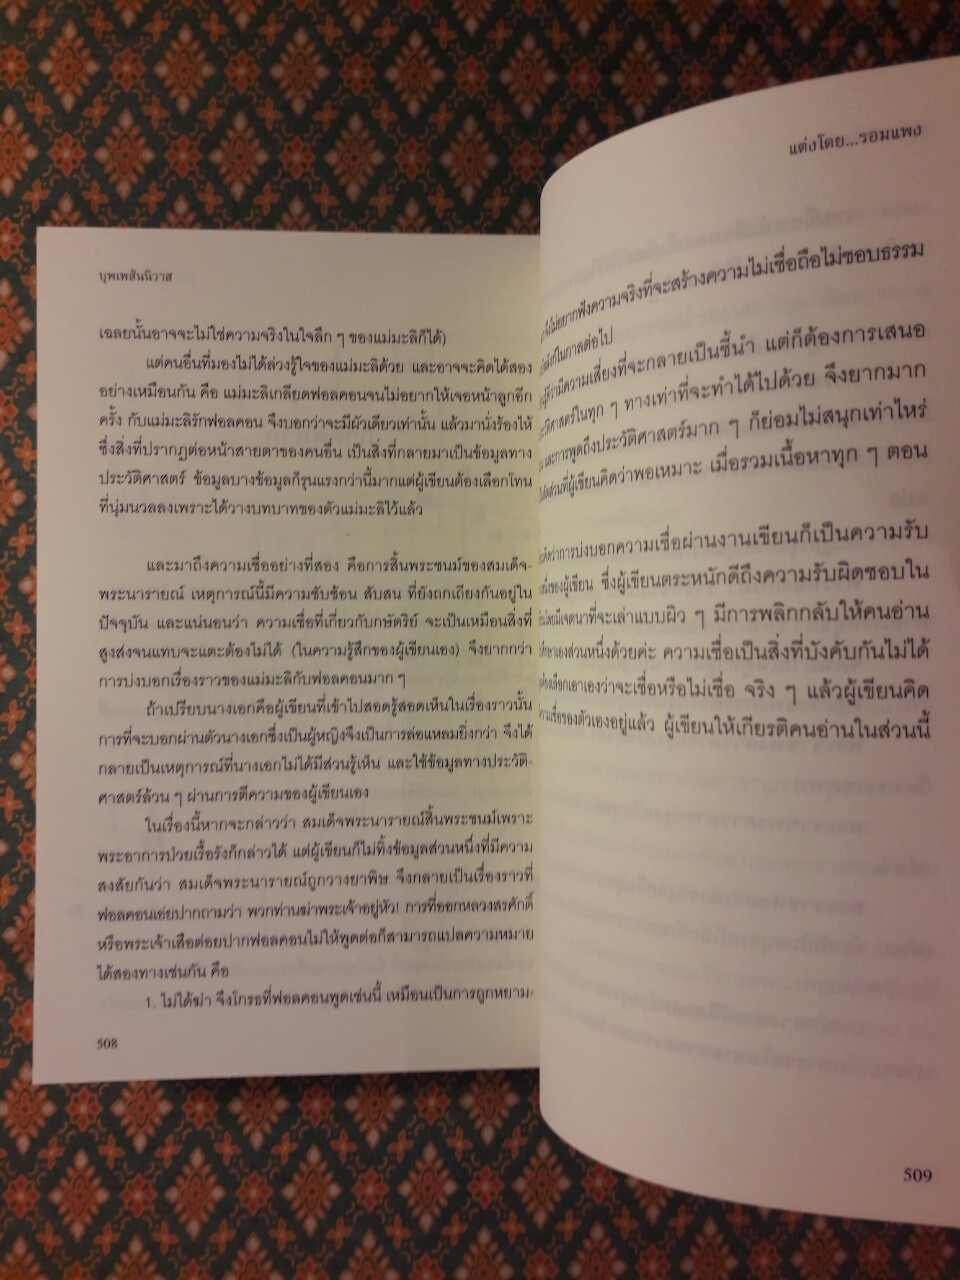 บุพเพสันนิวาส
เฉลยนั้นอาจจะไม่ใช่ความจริงในใจลึก ๆ ของแม่มะลิก็ได้)
แต่คนอื่นที่มองไม่ได้ล่วงรู้ใจของแม่มะลิด้วย และอาจจะคิดได้สอง
อย่างเหมือนกัน คือ แม่มะลิเกลียดฟอลคอนจนไม่อยากให้เจอหน้าลูกอีก
ครั้ง กับแม่มะลิรักฟอลคอน จึงบอกว่าจะมีผัวเดียวเท่านั้น แล้วมานั่งร้องไห้
ซึ่งสิ่งที่ปรากฏต่อหน้าสายตาของคนอื่น เป็นสิ่งที่กลายมาเป็นข้อมูลทาง
ประวัติศาสตร์ ข้อมูลบางข้อมูลก็รุนแรงกว่านี้มากแต่ผู้เขียนต้องเลือกโทน
ที่นุ่มนวลลงเพราะได้วางบทบาทของตัวแม่มะลิไว้แล้ว
และมาถึงความเชื่ออย่างที่สอง คือการสิ้นพระชนม์ของสมเด็จ-
พระนารายณ์ เหตุการณ์นี้มีความซับซ้อน สับสน ที่ยังถกเถียงกันอยู่ใน
ปัจจุบัน และแน่นอนว่า ความเชื่อที่เกี่ยวกับกษัตริย์ จะเป็นเหมือนสิ่งที่
สูงส่งจนแทบจะแตะต้องไม่ได้ (ในความรู้สึกของผู้เขียนเอง) จึงยากกว่า
การบ่งบอกเรื่องราวของแม่มะลิกับฟอลคอนมาก ๆ
ถ้าเปรียบนางเอกคือผู้เขียนที่เข้าไปสอดรู้สอดเห็นในเรื่องราวนั้น
การที่จะบอกผ่านตัวนางเอกซึ่งเป็นผู้หญิงจึงเป็นการล่อแหลมยิ่งกว่า จึงได้
กลายเป็นเหตุการณ์ที่นางเอกไม่ได้มีส่วนรู้เห็น และใช้ข้อมูลทางประวัติ-
ศาสตร์ล้วน ๆ ผ่านการตีความของผู้เขียนเอง
ในเรื่องนี้หากจะกล่าวว่า สมเด็จพระนารายณ์สิ้นพระชนม์เพราะ
พระอาการป่วยเรื้อรังก็กล่าวได้ แต่ผู้เขียนก็ไม่ทิ้งข้อมูลส่วนหนึ่งที่มีความ
สงสัยกันว่า สมเด็จพระนารายณ์ถูกวางยาพิษ จึงกลายเป็นเรื่องราวที่
ฟอลคอนเอ่ยปากถามว่า พวกท่านฆ่าพระเจ้าอยู่หัว! การที่ออกหลวงสรศักดิ์
หรือพระเจ้าเสือต่อยปากฟอลคอนไม่ให้พูดต่อก็สามารถแปลความหมาย
ได้สองทางเช่นกัน คือ
1. ไม่ได้ฆ่า จึงโกรธที่ฟอลคอนพูดเช่นนี้ เหมือนเป็นการถูกหยาม-
508
แต่งโดย...รอมแพง
จึงไม่อยากฟังความจริงที่จะสร้างความไม่เชื่อถือไม่ชอบธรรม
ในกาลต่อไป
ว่ามีความเสี่ยงที่จะกลายเป็นชี้นำ แต่ก็ต้องการเสนอ
ในทุก ๆ ทางเท่าที่จะทำได้ไปด้วย จึงยากมาก
และการพูดถึงประวัติศาสตร์มาก ๆ ก็ย่อมไม่สนุกเท่าไหร่
ส่วนที่ผู้เขียนคิดว่าพอเหมาะ เมื่อรวมเนื้อหาทุก ๆ ตอน
คิดว่าการบ่งบอกความเชื่อผ่านงานเขียนก็เป็นความรับ
ของผู้เขียน ซึ่งผู้เขียนตระหนักดีถึงความรับผิดชอบใน
โดยมีเจตนาที่จะเล่าแบบผิว ๆ มีการพลิกกลับให้คนอ่าน
เองส่วนหนึ่งด้วยค่ะ ความเชื่อเป็นสิ่งที่บังคับกันไม่ได้
เลือกเอาเองว่าจะเชื่อหรือไม่เชื่อ จริง ๆ แล้วผู้เขียนคิด
ของตัวเองอยู่แล้ว ผู้เขียนให้เกียรติคนอ่านในส่วนนี้
509